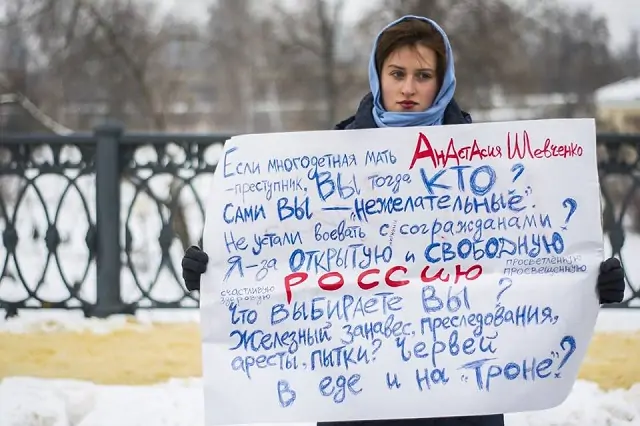 Если многодетная мать АнАстАсия Шевченко
– преступник, Вы тогда КТО?
Сами Вы – "нежелательные".
Не устали воевать с согражданами?
Я – за ОТКРЫТУЮ и СВОБОДНУЮ
счастливую
здоровую
РОССИЮ
просветлённую
просвещённую
Что выбираете Вы?
Железный занавес, преследования,
аресты, пытки? Червей
в еде и на "Троне"?